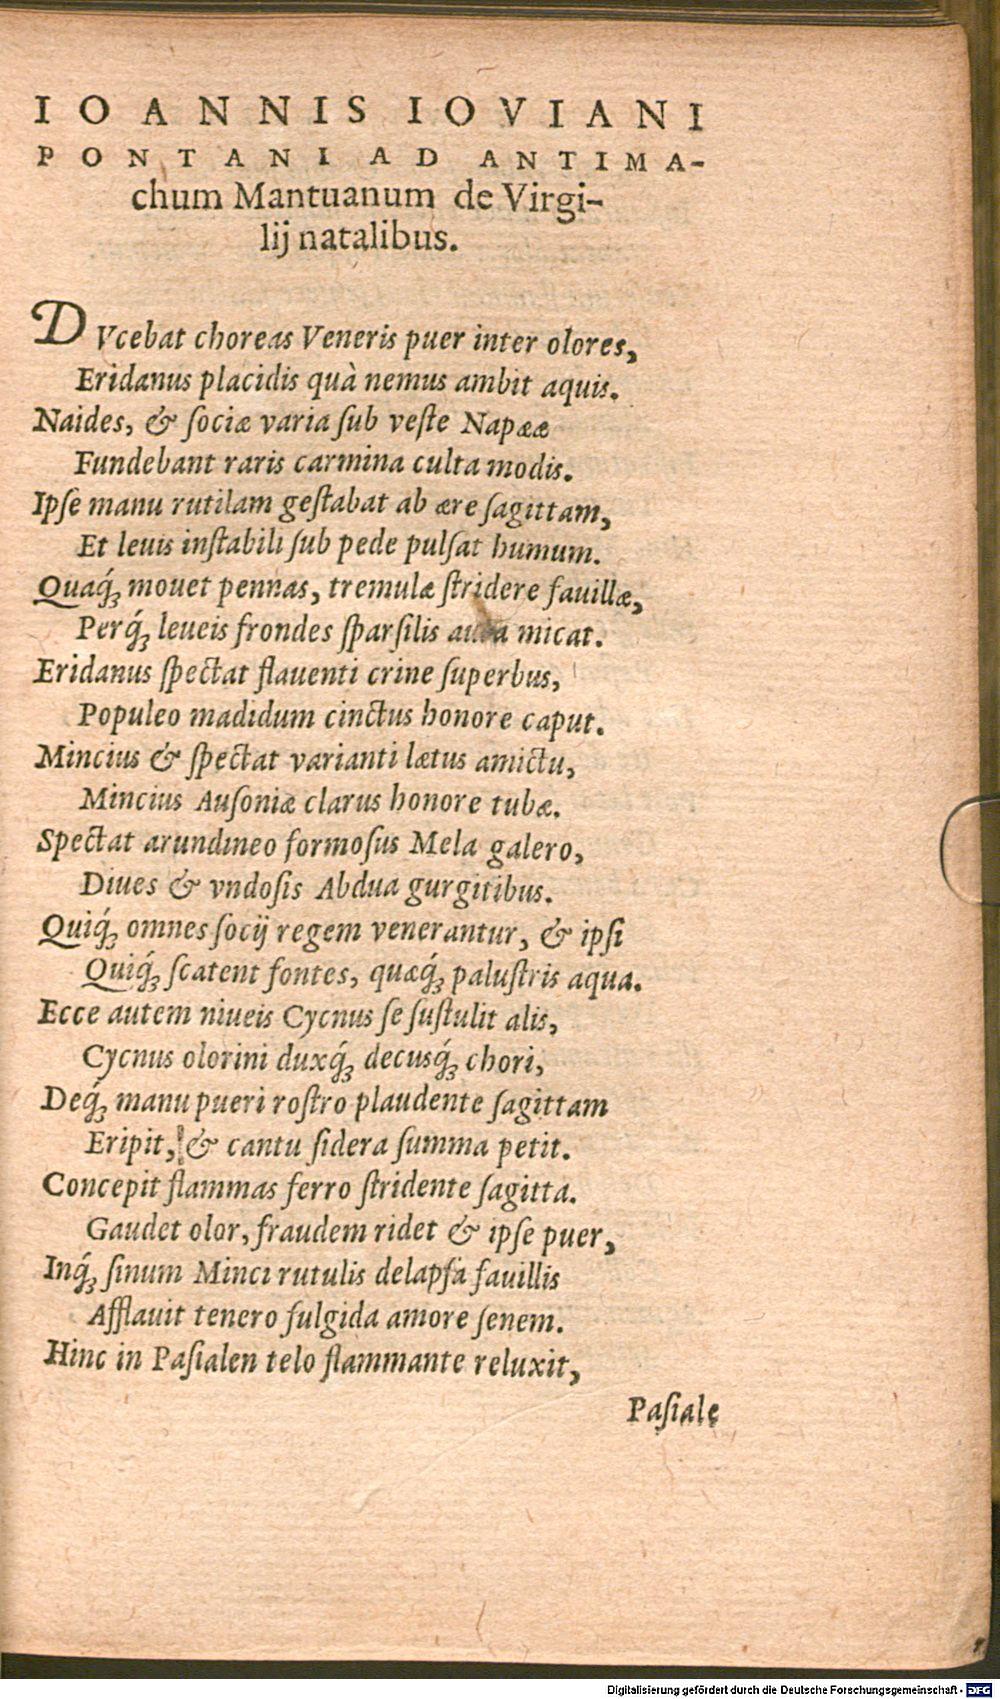 IOANNIS IOVIANI
PONTANI AD ANTIMA-
chum Mantuanum de Virgi-
lij natalibus.
DVcebat choreas Veneris puer inter olores,
Eridanus placidis quà nemus ambit aquis.
Naides, & sociæ varia sub veste Napææ
Fundebant raris carmina culta modis.
Ipse manu rutilam gestabat ab ære sagittam,
Et leuis instabili sub pede pulsat humum.
Quaq́ꝫ mouet pennas, tremulæ stridere fauillæ,
Perq́ꝫ leueis frondes sparsilis micat.
Eridanus spectat flauenti crine superbus,
Populeo madidum cinctus honore caput.
Mincius & spectat varianti lætus amictu,
Mincius Ausoniæ clarus honore tubæ.
Spectat arundineo formosus Mela galero,
Diues & vndosis Abdua gurgitibus.
Quiq́ꝫ omnes socij regem venerantur, & ipsi
Quiq́ꝫ scatent fontes, quæq́ꝫ palustris aqua.
Ecce autem niueis Cycnus se sustulit alis,
Cycnus olorini duxq́ꝫ decusq́ꝫ chori,
Deq́ꝫ manu pueri rostro plaudente sagittam
Eripit, & cantu sidera summa petit.
Concepit flammas ferro stridente sagitta.
Gaudet olor, fraudem ridet & ipse puer,
Inq́ꝫ sinum Minci rutulis delapsa fauillis
Afflauit tenero fulgida amore senem.
Hinc in Pasialen telo flammante reluxit,
Pasiale
Digitalisierung gefördert durch die Deutsche Forschungsgemeinschaft - DFG